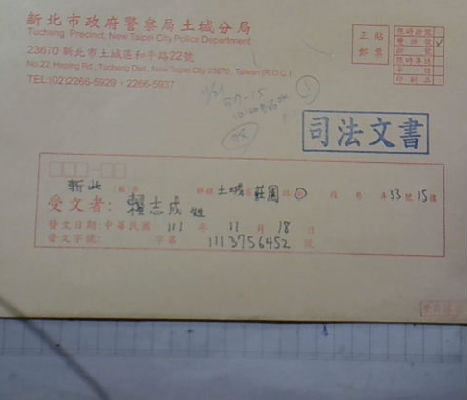 新北市政府警察局土城分局
Tucheng Precinct, New Taipei City Police Department
23670 新北市土城區和平路22號
No.22, Heping Rd., Tucheng Dist., New Taipei City 23670, Taiwan (R.O.C.)
TEL:(02)2266-5929、2266-5937
正貼
郵票
司法文書
新北 土城 莊園 33號 15樓
受文者: 賴志成
發文日期:中華民國 111 年 11 月 18 日
發文字號: 字第 1113756452 號